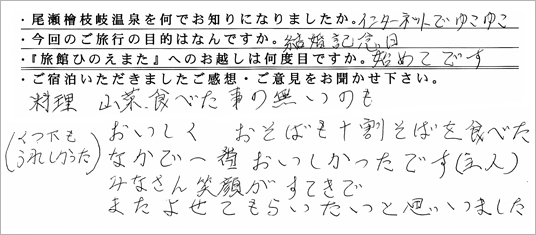 ・尾瀬檜枝岐温泉を何でお知りになりましたか。インターネットでゆこゆこ
・今回のご旅行の目的はなんですか。結婚記念日
・『旅館ひのえまた』へのお越しは何度目ですか。始めてです
・ご宿泊いただきましたご感想・ご意見をお聞かせ下さい。
料理 山菜、食べた事の無いのも
おいしく おそばも十割そばを食べた
(くつ下も
うれしかった)
なかで一番おいしかったです(主人)
みなさん笑顔がすてきで
またよせてもらいたいっと思いいました